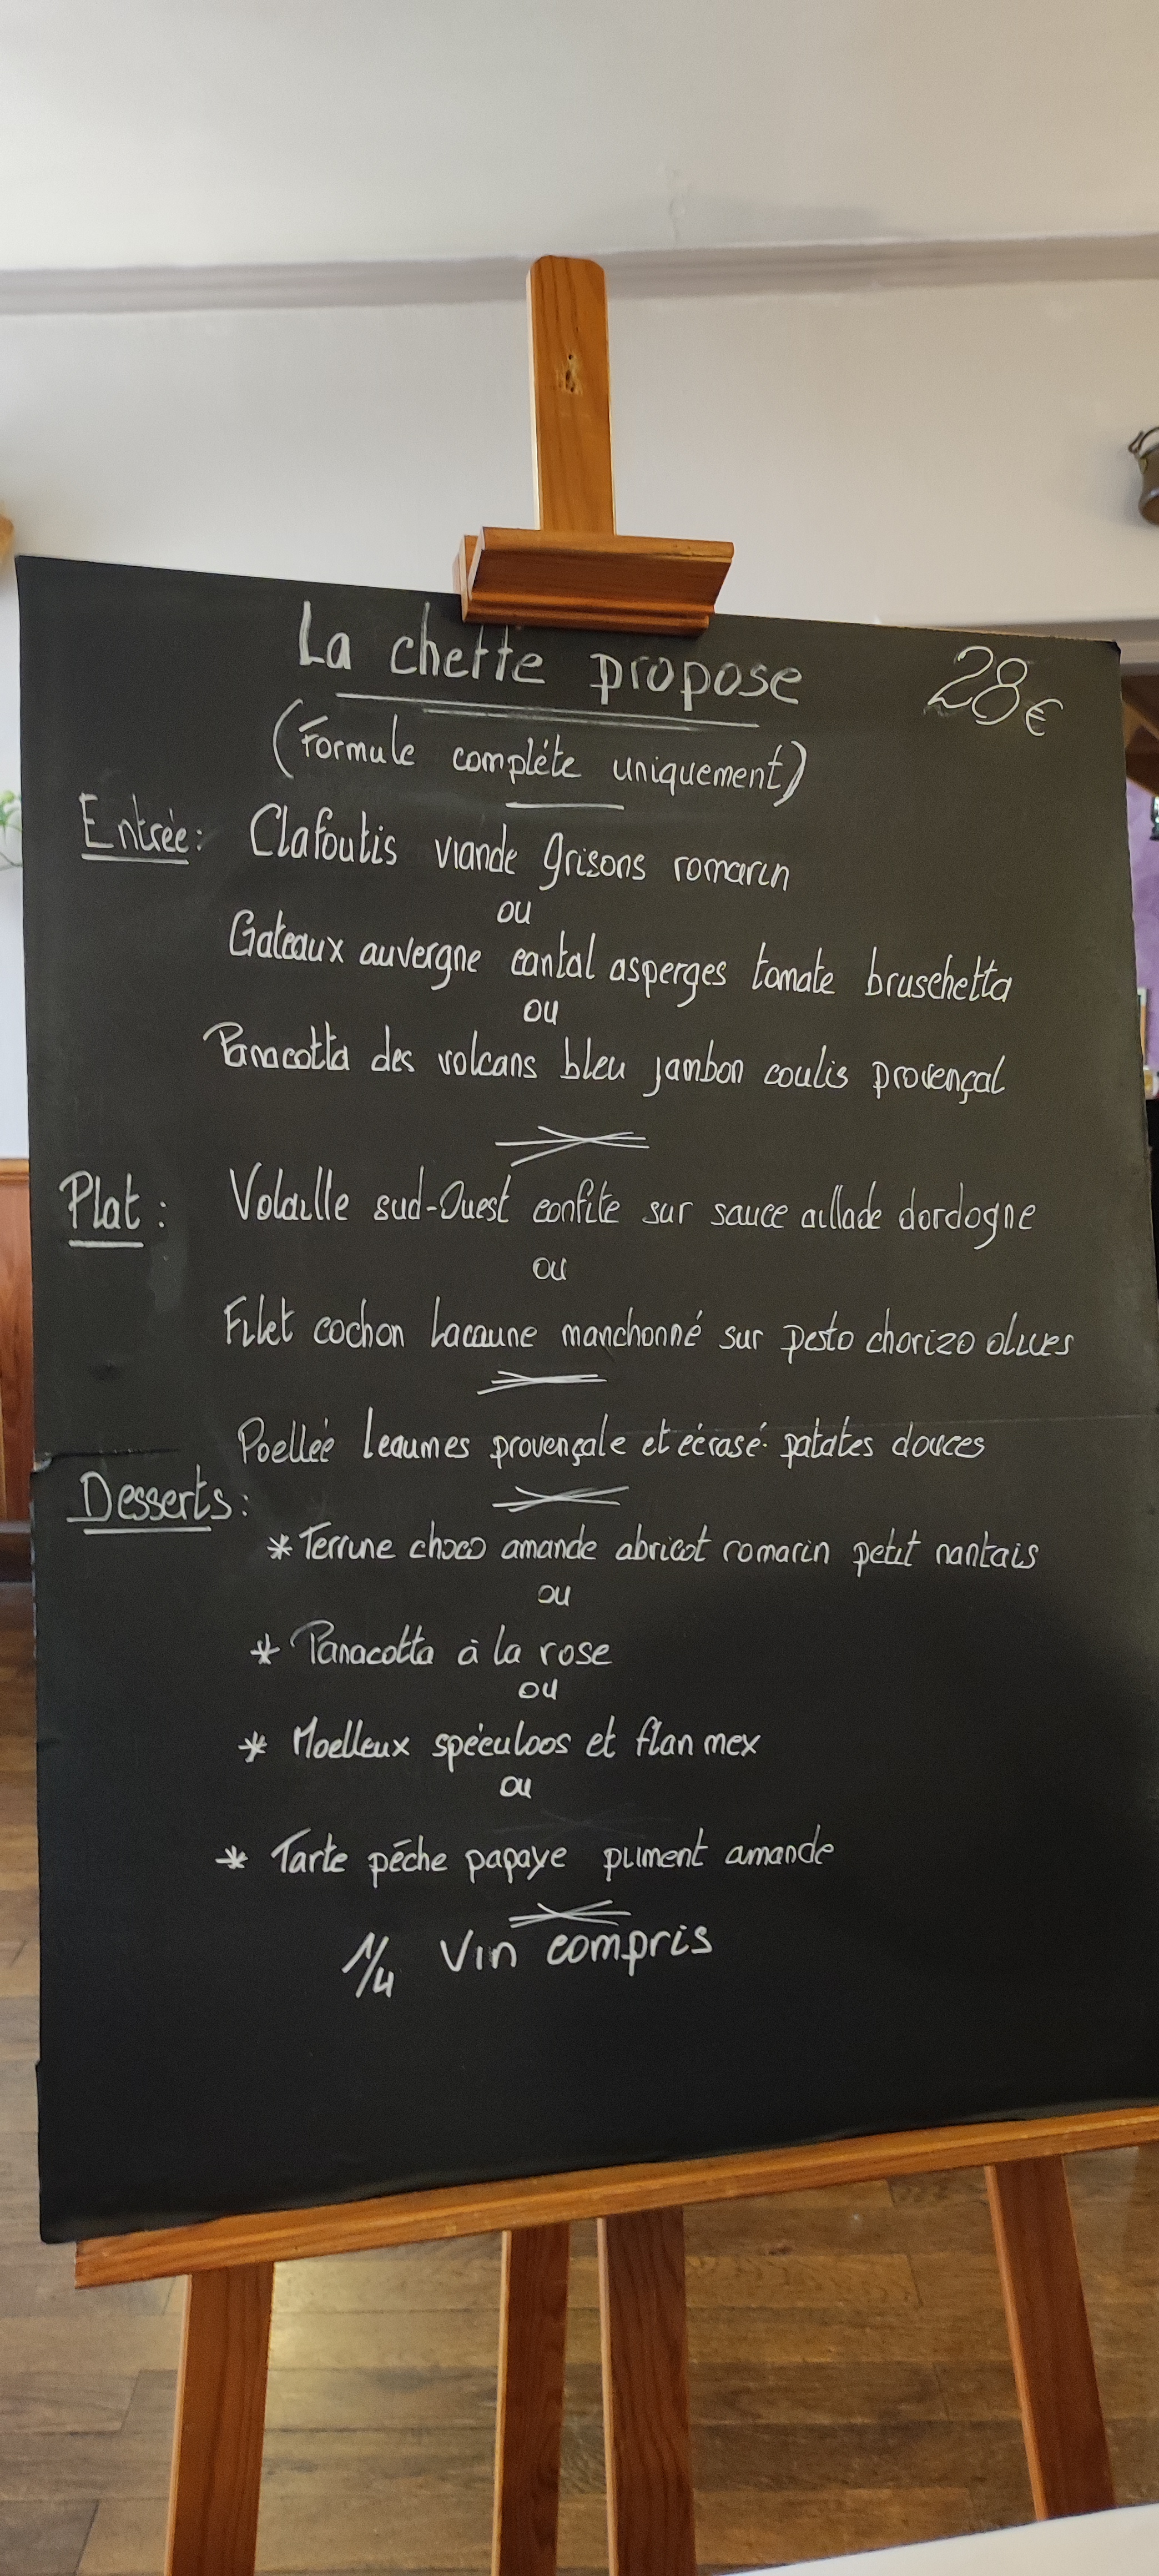 La chette propose 28€
(Formule complète uniquement)
Entrée: Clafoutis viande grisons romarin
ou
Gateaux auvergne cantal asperges tomate bruschetta
ou
Panacotta des volcans bleu jambon coulis provençal
Plat: Volaille sud-Ouest confite sur sauce aillade dordogne
ou
Filet cochon Lacaune manchonné sur pesto chorizo olives
Poelleé leaumes provençale et écrasé patates douces
Desserts:
* Terrine choco amande abricot romarin petit nantais
ou
* Panacotta à la rose
ou
* Moelleux spéculoos et flan mex
ou
* Tarte pêche papaye piment amande
1/4 Vin compris